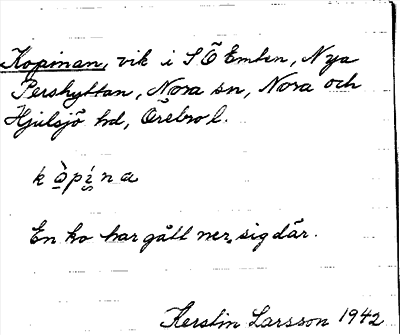 Kopinan, vik i SÖ Emlen, Nya
Pershyttan, Nora sn, Nora och
Hjulsjö hd, Örebro l.
kòpína
En ko har gått ner sig där.
Kerstin Larsson 1942